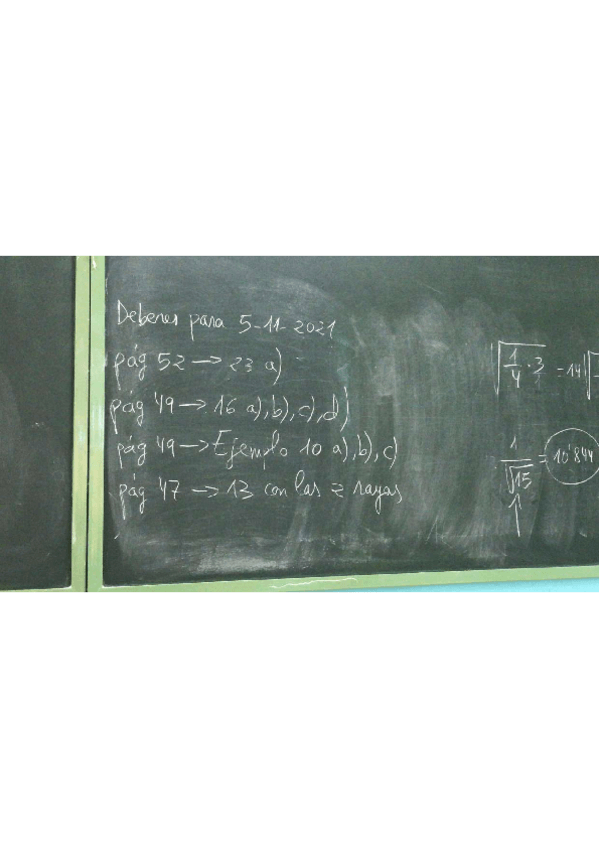 Deberes para 5-11-2021
pág 52 → 23 a)
pág 49 → 16 a), b), c), d)
pág 49 → Ejemplo 10 a), b), c)
pág 47 → 13 con las 2 rayas
√(1/4 · 3) = 14√
1/√15 = 10'844